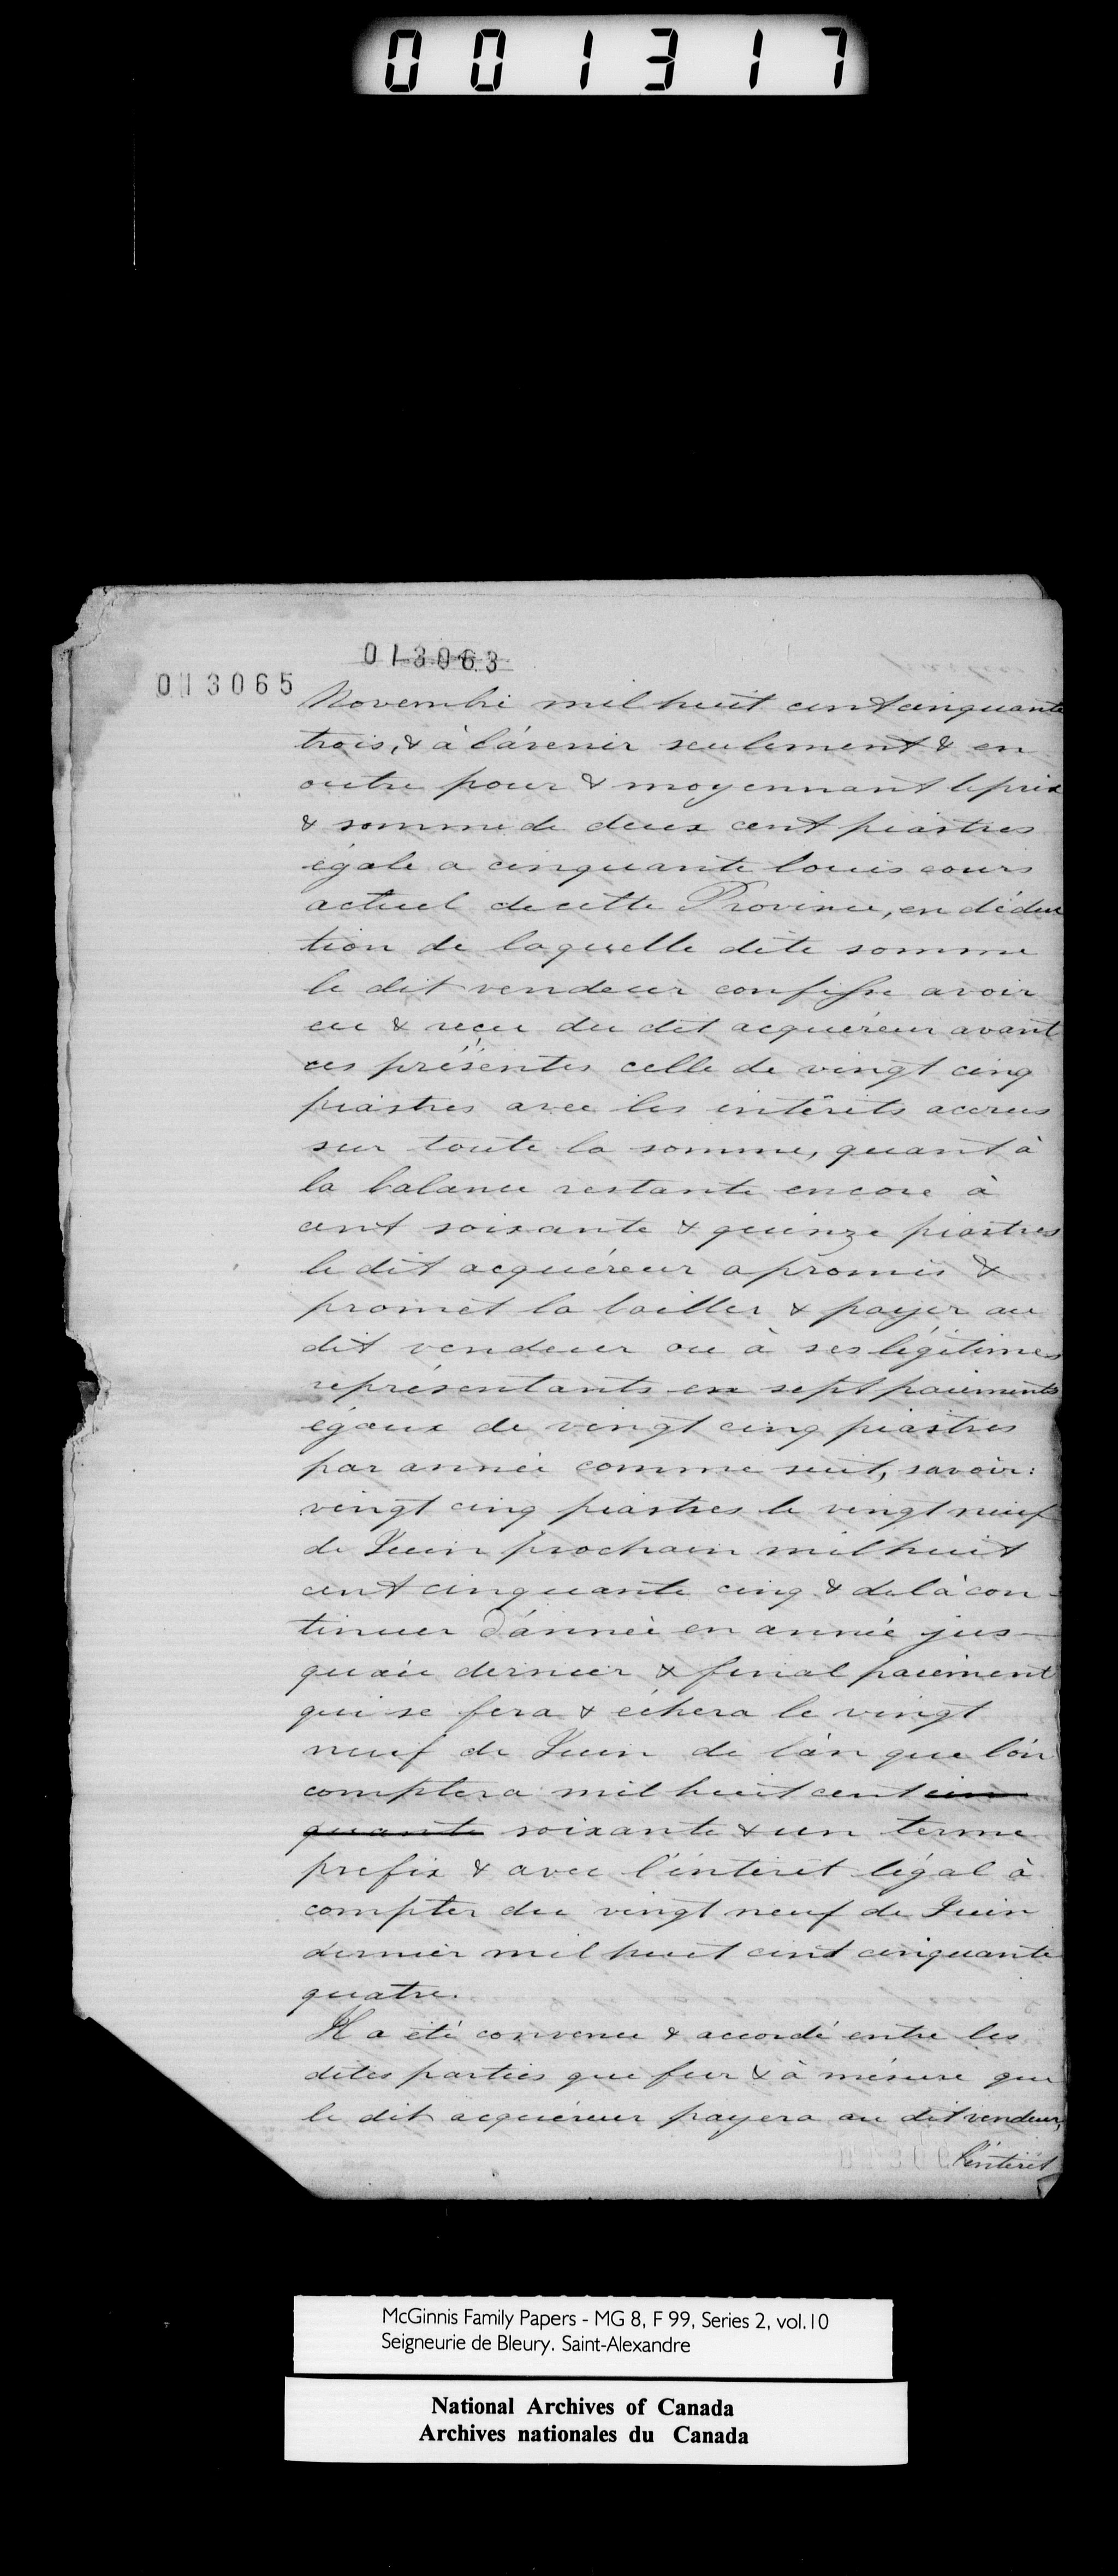 001317
013063
013065
Novembre mil huit cent cinquante
trois, & à l'avenir seulement & en
outre pour & moyennant le prix
& somme de deux cent piastres
égale a cinquante louis cours
actuel de cette Province, en déduc
tion de laquelle dite somme
le dit vendeur confesse avoir
eu & reçu du dit acquéreur avant
ces présentes celle de vingt cinq
piastres avec les intérêts accrus
sur toute la somme, quant à
la balance restante encore à
cent soixante & quinze piastres
le dit acquéreur a promis &
promet la bailler & payer au
dit vendeur ou à ses légitimes
représentants en sept paiements
égaux de vingt cinq piastres
par année comme suit, savoir:
vingt cinq piastres le vingt neuf
de Juin prochain mil huit
cent cinquante cinq & de là con-
tinuer d'année en année jus-
qu'au dernier & final paiement
qui se fera & échera le vingt
neuf de Juin de l'an que l'on
comptera mil huit cent cin
quante soixante & un terme
prefix & avec l'intérêt légal à
compter du vingt neuf de Juin
dernier mil huit cent cinquante
quatre.
Il a été convenu & accordé entre les
dites parties que fur & à mésure que
le dit acquéreur payera au dit vendeur,
l'intérêt
McGinnis Family Papers - MG 8, F 99, Series 2, vol.10
Seigneurie de Bleury. Saint-Alexandre
National Archives of Canada
Archives nationales du Canada